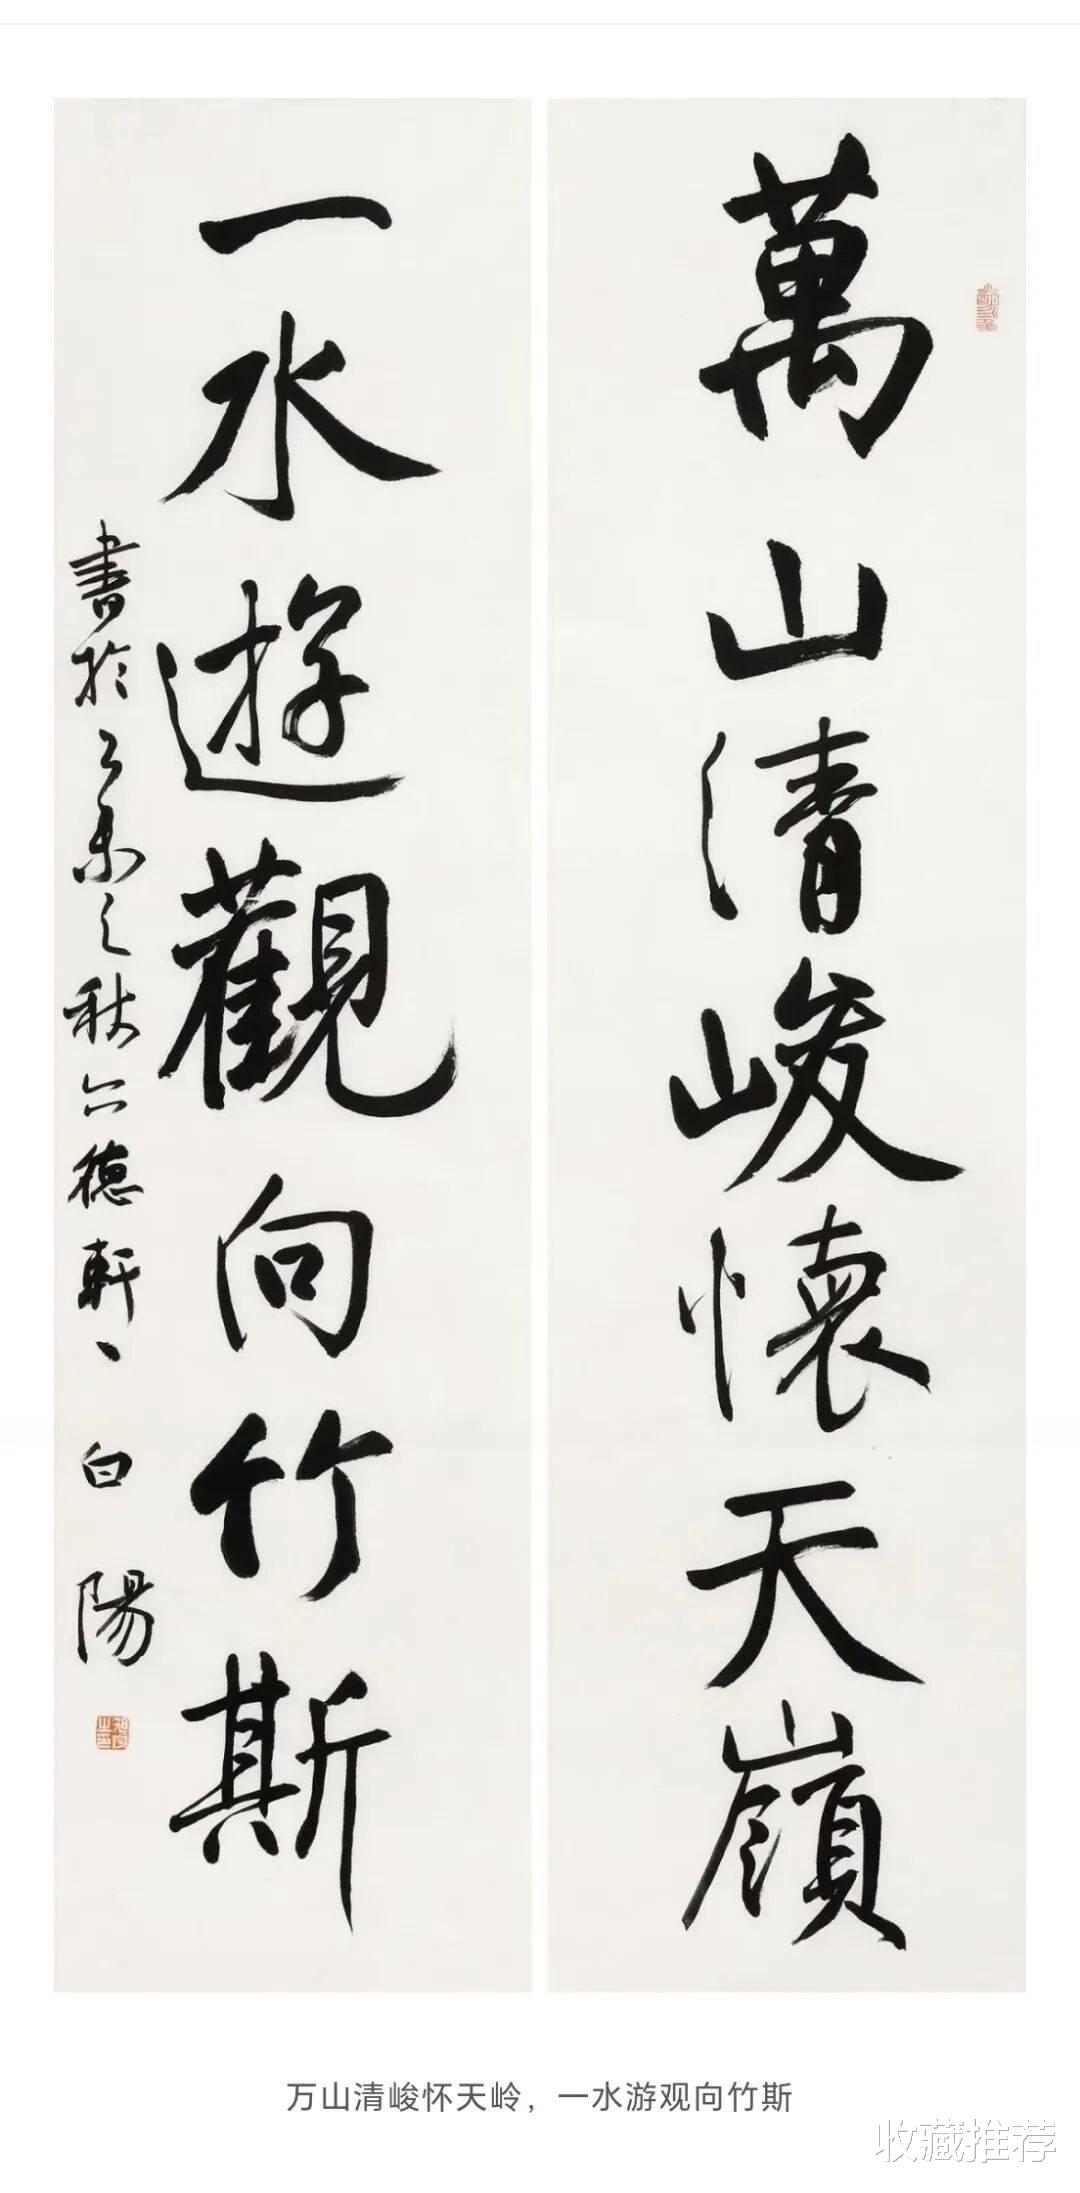 萬山清峻懷天嶺
一水遊觀向竹斯
書於乙未之秋六德軒、白陽
万山清峻怀天岭，一水游观向竹斯
收藏推荐